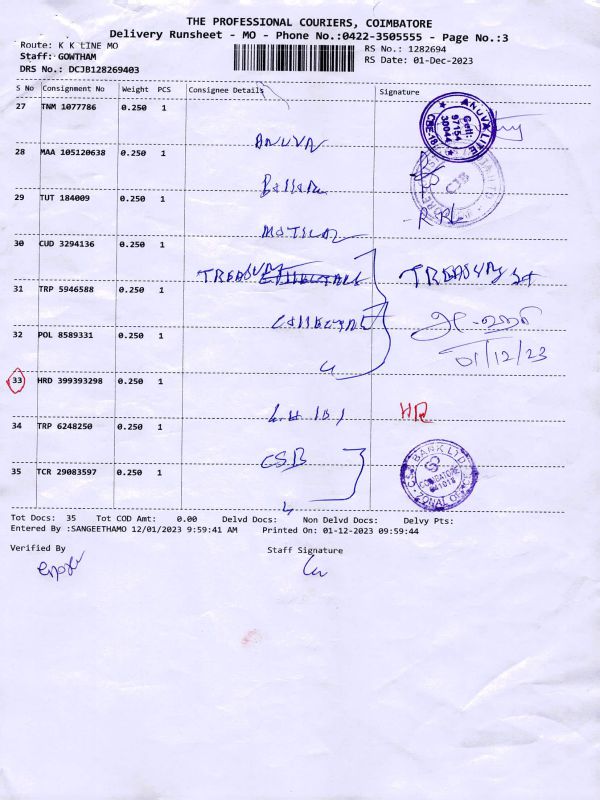 THE PROFESSIONAL COURIERS, COIMBATORE
Delivery Runsheet - MO - Phone No.:0422-3505555 - Page No.:3
Route: K K LINE MO
RS No.: 1282694
Staff: GOWTHAM
RS Date: 01-Dec-2023
DRS No.: DCJB128269403
S No Consignment No Weight PCS Consignee Details Signature
27 TNM 1077786 0.250 1
ANUVA
28 MAA 105120638 0.250 1
29 TUT 184009 0.250 1
MOTILAL
30 CUD 3294136 0.250 1
TREASURY TREASURY
31 TRP 5946588 0.250 1
32 POL 8589331 0.250 1
01/12/23
33 HRD 399393298 0.250 1
HR
34 TRP 6248250 0.250 1
CSB
35 TCR 29083597 0.250 1
CSB BANK LTD
COIMBATORE
641018
Tot Docs: 35 Tot COD Amt: 0.00 Delvd Docs: Non Delvd Docs: Delvy Pts:
Entered By :SANGEETHAMO 12/01/2023 9:59:41 AM Printed On: 01-12-2023 09:59:44
Verified By Staff Signature